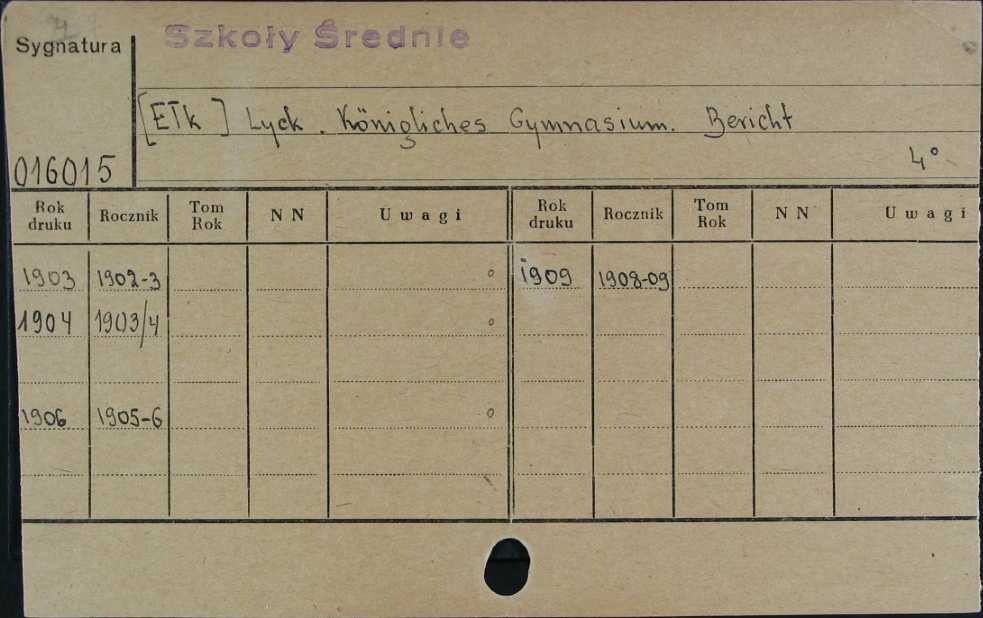 Szkoły Średnie
Sygnatura
[Ełk] Lyck. Königliches Gymnasium. Bericht
4°
016015
Rok druku Rocznik Tom Rok N N Uwagi Rok druku Rocznik Tom Rok N N Uwagi
1903 1902-3 o 1909 1908-09
1904 1903/4 o
1906 1905-6 o